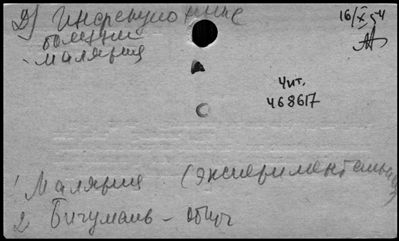 2) Инфекционные
болезни
- малярия
16/X 54
Чит.
468617
1 Малярия (эксперименталь
2 Бигумаль - общ